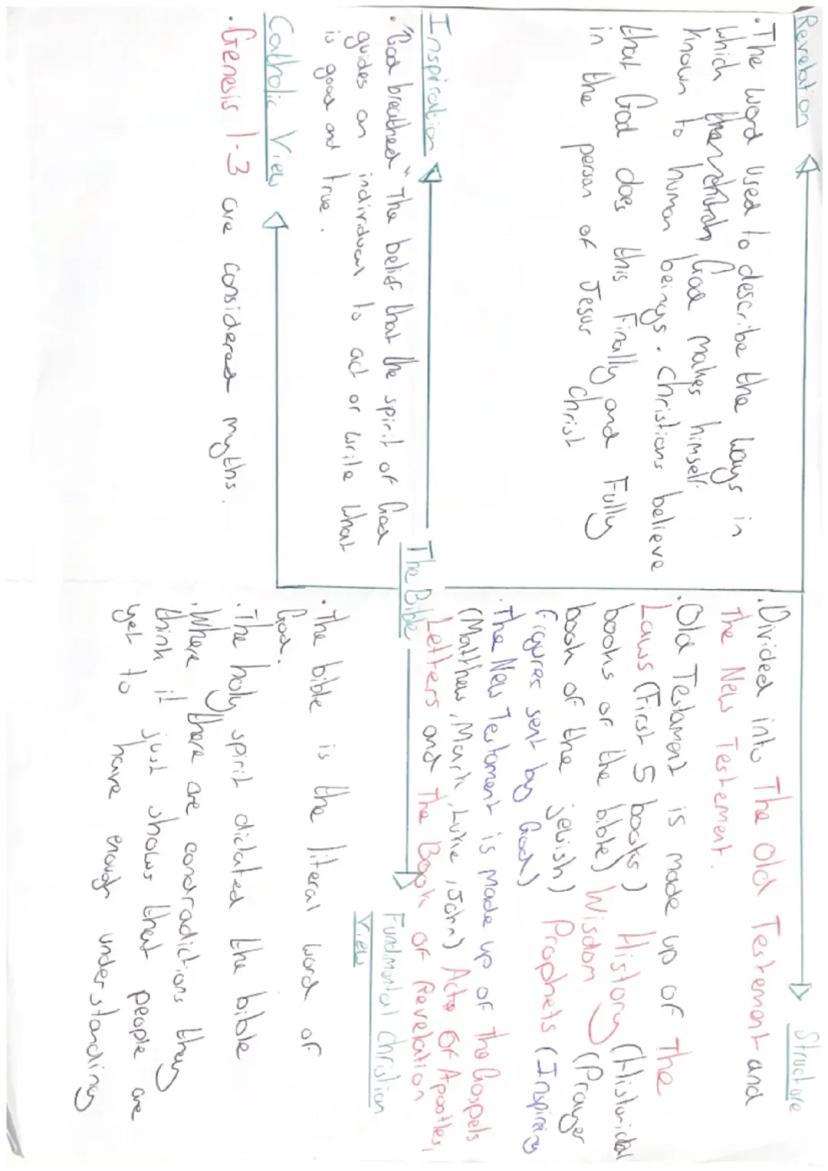 Revelation
· The word used to describe the ways in
which God makes himself
known to human beings. Christians believe
that God does this Finally and Fully
in the person of Jesus Christ
Inspiration
· "God breathed" The belief that the spirit of God
guides an individual to act or write what
is good and true.
Catholic View
· Genesis 1-3 are considered myths.
The Bible
Structure
· Divided into The Old Testement and
The New Testement.
· Old Testament is made up of The
Laws (First 5 books) History (Historical
books of the bible) Wisdom (Prayer
book of the jewish) Prophets (Inspiring
figures sent by God)
· The New Testament is made up of the Gospels
(Matthew, Mark, Luke, John) Acts Of Apostles,
Letters and The Book of Revelation
Fundmental Christian
View
· The bible is the literal word of
God.
· The holy spirit dictated the bible
· Where there are contradictions they
think it just shows that people are
yet to have enough understanding